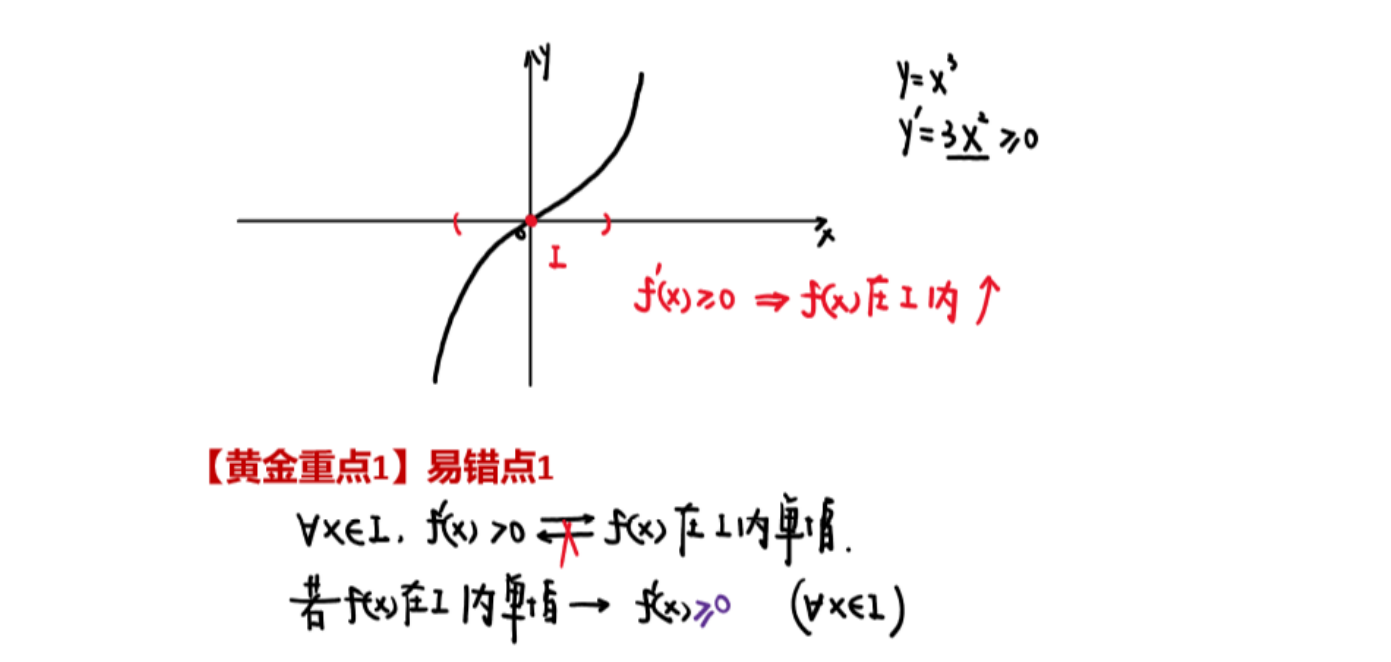 y
y=x³
y'=3x²≥0
( )
o
x
I
f'(x)≥0 ⇒ f(x)在I内↑
【黄金重点1】易错点1
∀x∈I, f'(x)>0 ⇄ f(x)在I内单增.
若f(x)在I内单增→ f'(x)≥0 (∀x∈I)